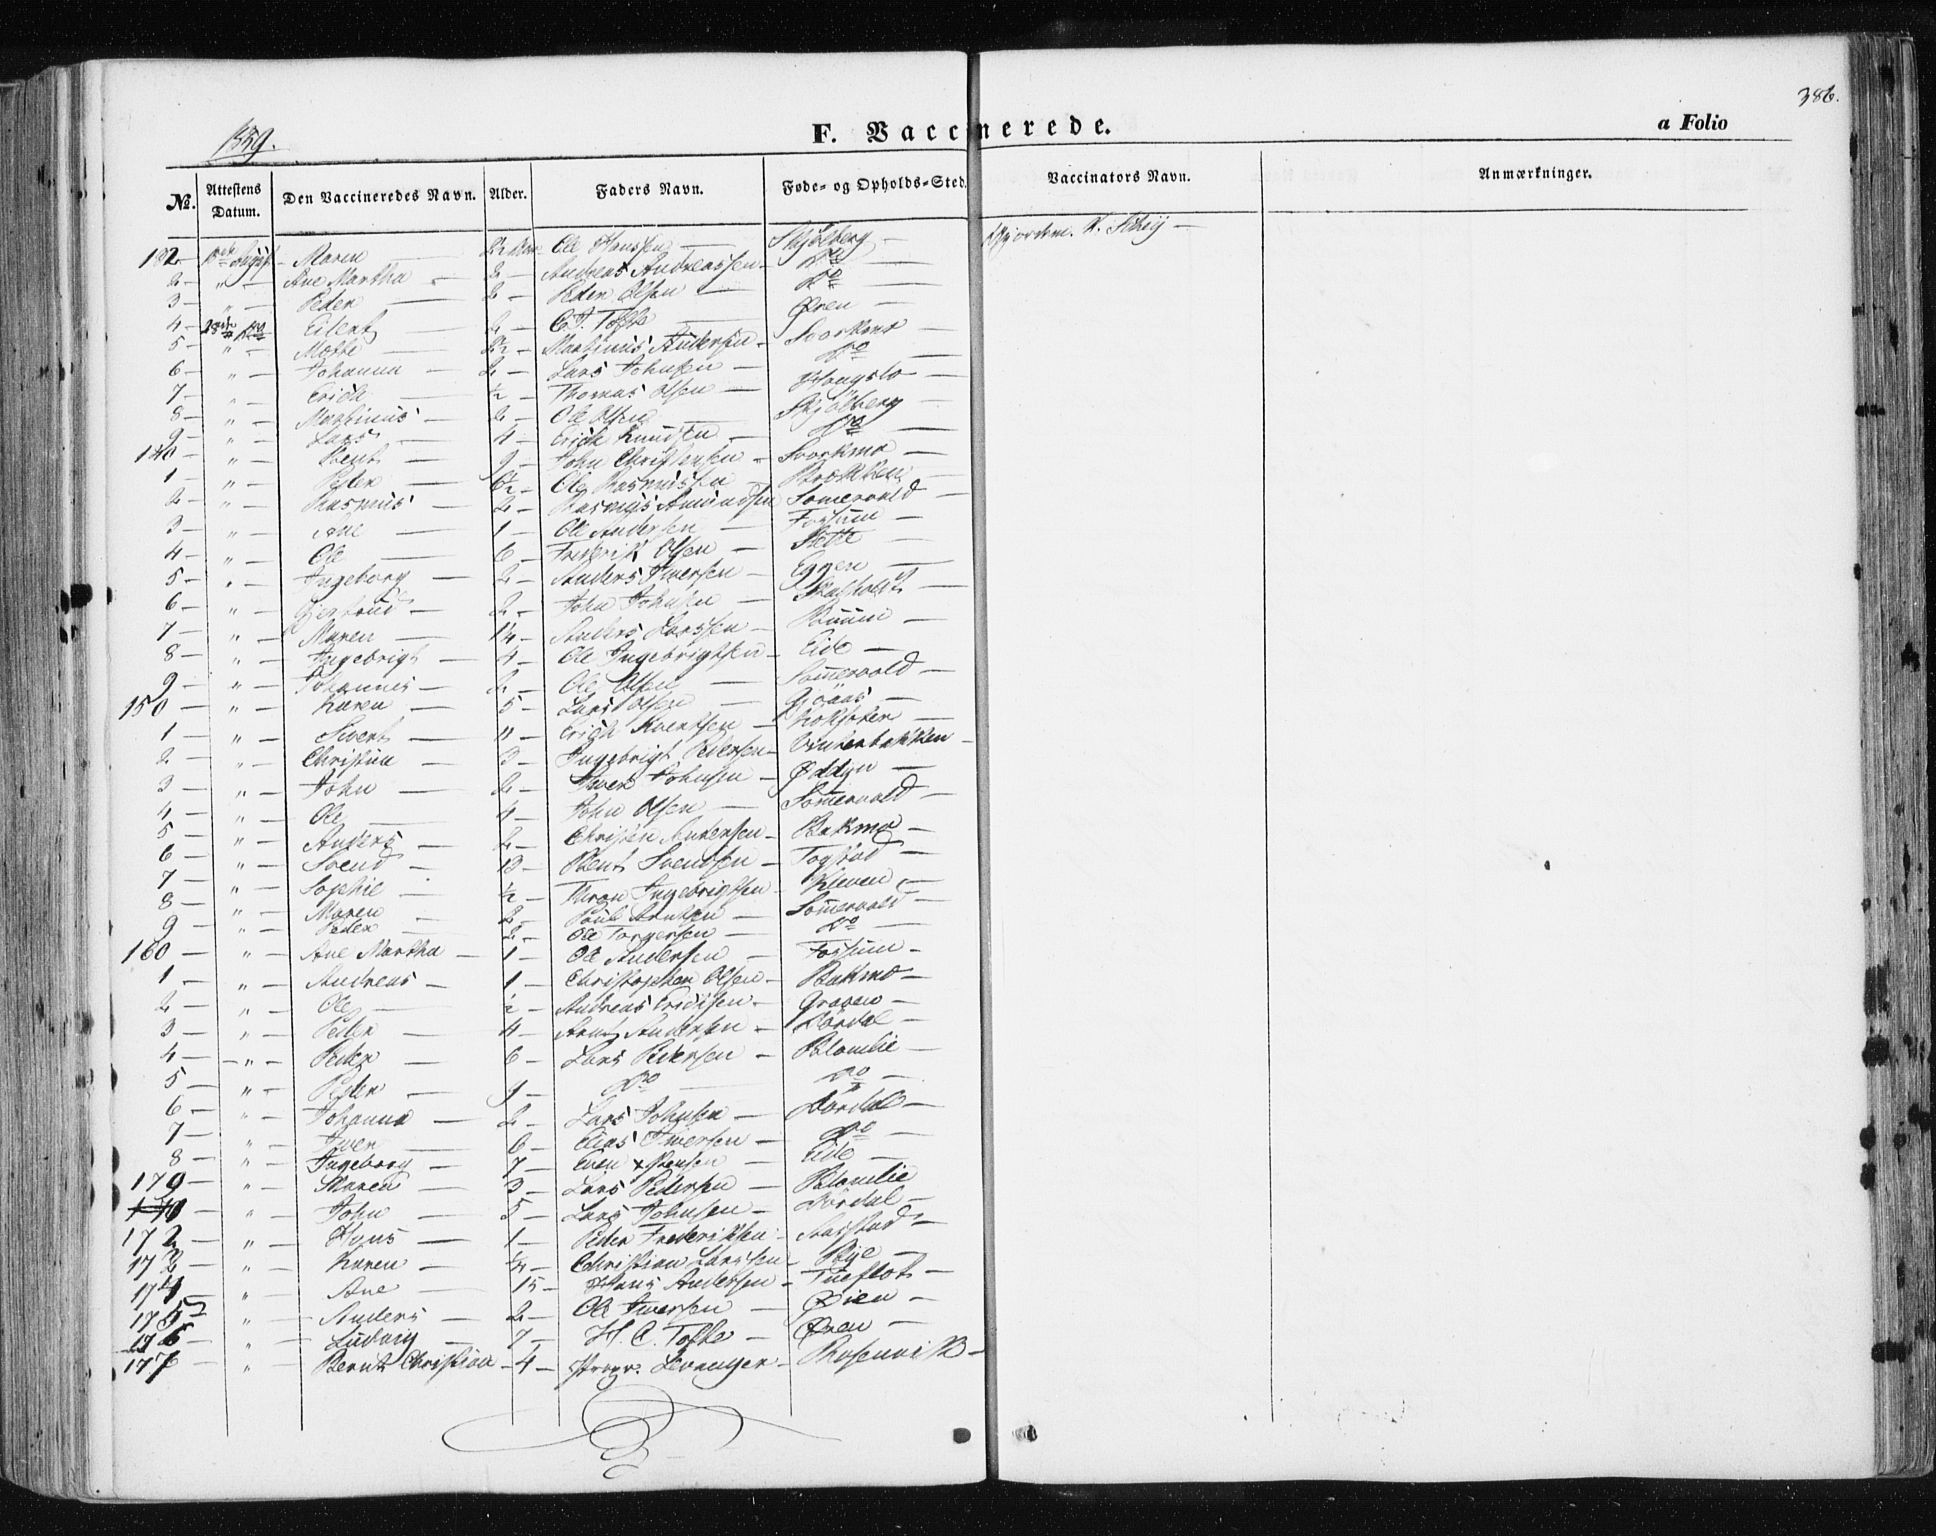 386.
1859.
F. Vaccinerede.
a Folio
No. Attestens Datum. Den Vaccineredes Navn. Alder. Faders Navn. Føde- og Opholds-Sted. Vaccinators Navn. Anmærkninger.
Maren — Ole Hanssen — Skjølberg — Gjordem. K. Siberg —
2 — " — Ane Martha — 2 — Andreas Andreassen — Do —
3 — " — Peder — 2 — Peder Olsen — Do —
4 — Eilert — 2 — C. J. Tofte — Øren —
5 — " — Mette — 2½ — Martinus Andersen — Svorkmo
6 — " — Johanna — 2 — Lars Johnsen — Do —
7 — " — Erich — ½ — Thomas Olsen — Hongslo —
8 — " — Martinus — 2 — Ole Olsen — Skjølberg —
9 — " — Lars — 4 — Erich Knudsen — Do —
140 — " — Bent — 9 — John Christensen — Svorkmo —
1 — " — Peder — 6½ — Ole Rasmussen — Bækken —
2 — " — Rasmus — 2 — Rasmus Amundsen — Somervold —
3 — " — Ane — 1 — Ole Andersen — Forsum —
4 — " — Ole — 6 — Frederik Olsen — Slette —
5 — " — Ingeborg — 2 — Anders Iversen — Eggen —
6 — " — Gjertrud — 2 — John Johnsen — Skalholt —
7 — " — Maren — 1¼ — Anders Larssen —
8 — " — Ingebrigt — 4 — Ole Ingebrigtsen — Eide —
9 — " — Johannes — 2 — Ole Olsen — Somervold —
150 — " — Karen — 5 — Lars Olsen — Gjøaas —
1 — " — Sivert — " — Erich Sivertsen —
2 — " — Christine — 3 — Ingebrigt Pedersen — Vinterbakken —
3 — " — John — 2 — Iver Johnsen — Oddyn —
4 — " — Ole — 4 — John Olsen — Somervold —
5 — " — Anders — 2 — Christen Andersen — Bakmo —
6 — " — Svend — 13 — Bent Svendsen — Togstad —
7 — " — Sophie — ½ — Thron Ingebrigtsen — Kleven —
8 — " — Maren — 2 — Paul Arntsen — Somervold —
9 — " — Peder — 2 — Ole Torgersen — Do —
160 — " — Ane Martha — 1 — Ole Andersen — Forsum —
1 — " — Andreas — 1 — Christopher Olsen — Bakmo —
2 — " — Ole — ½ — Andreas Erichsen — Graven —
3 — " — Peder — 4 — Arnt Andersen — Dørdal —
4 — " — Peder — 6 — Lars Pedersen — Blomlie —
5 — " — Peder — 9 — Do — Do —
6 — " — Johanna — 2 — Lars Johnsen — Dørdal —
7 — " — Iver — 6 — Elias Iversen — Do —
8 — " — Ingeborg — 7 — Even — Eide —
179 — " — Maren — 3 — Lars Pedersen — Blomlie
" — John — 5 — Lars Johnsen — Dørdal —
172 — " — Hans — 1 — Peder Frederiksen — Aarstad —
" — Karen — ¼ — Christian Larssen — Bye —
174 — " — Ane — 15 — Hans Andersen — Tueflot —
175 — " — Anders — 2 — Ole Iversen — Øien —
176 — " — Ludvig — 7 — H. C. Tofte — Øren —
177 — " — Bernt Christian — 4 — Levanger — Rosenvik —